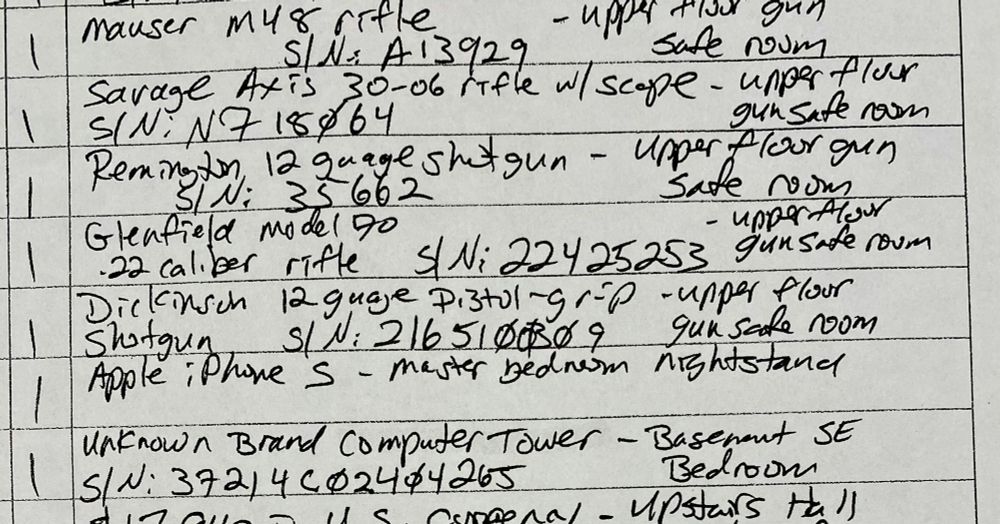 1 Mauser M48 rifle - upper floor gun
S/N: A13929 safe room
Savage Axis 30-06 rifle w/scope - upper floor
1 S/N: N718064 gun safe room
Remington 12 guage shotgun - upper floor gun
1 S/N: 35662 safe room
Glenfield model - upper floor
1 .22 caliber rifle S/N: 22425253 gun safe room
Dickinson 12 guage Pistol-grip - upper floor
1 Shotgun S/N: 2165100309 gun safe room
1 Apple iPhone S - master bedroom nightstand
Unknown Brand Computer Tower - Basement SE
1 S/N: 37214C02404265 Bedroom
U.S. - Upstairs Hall